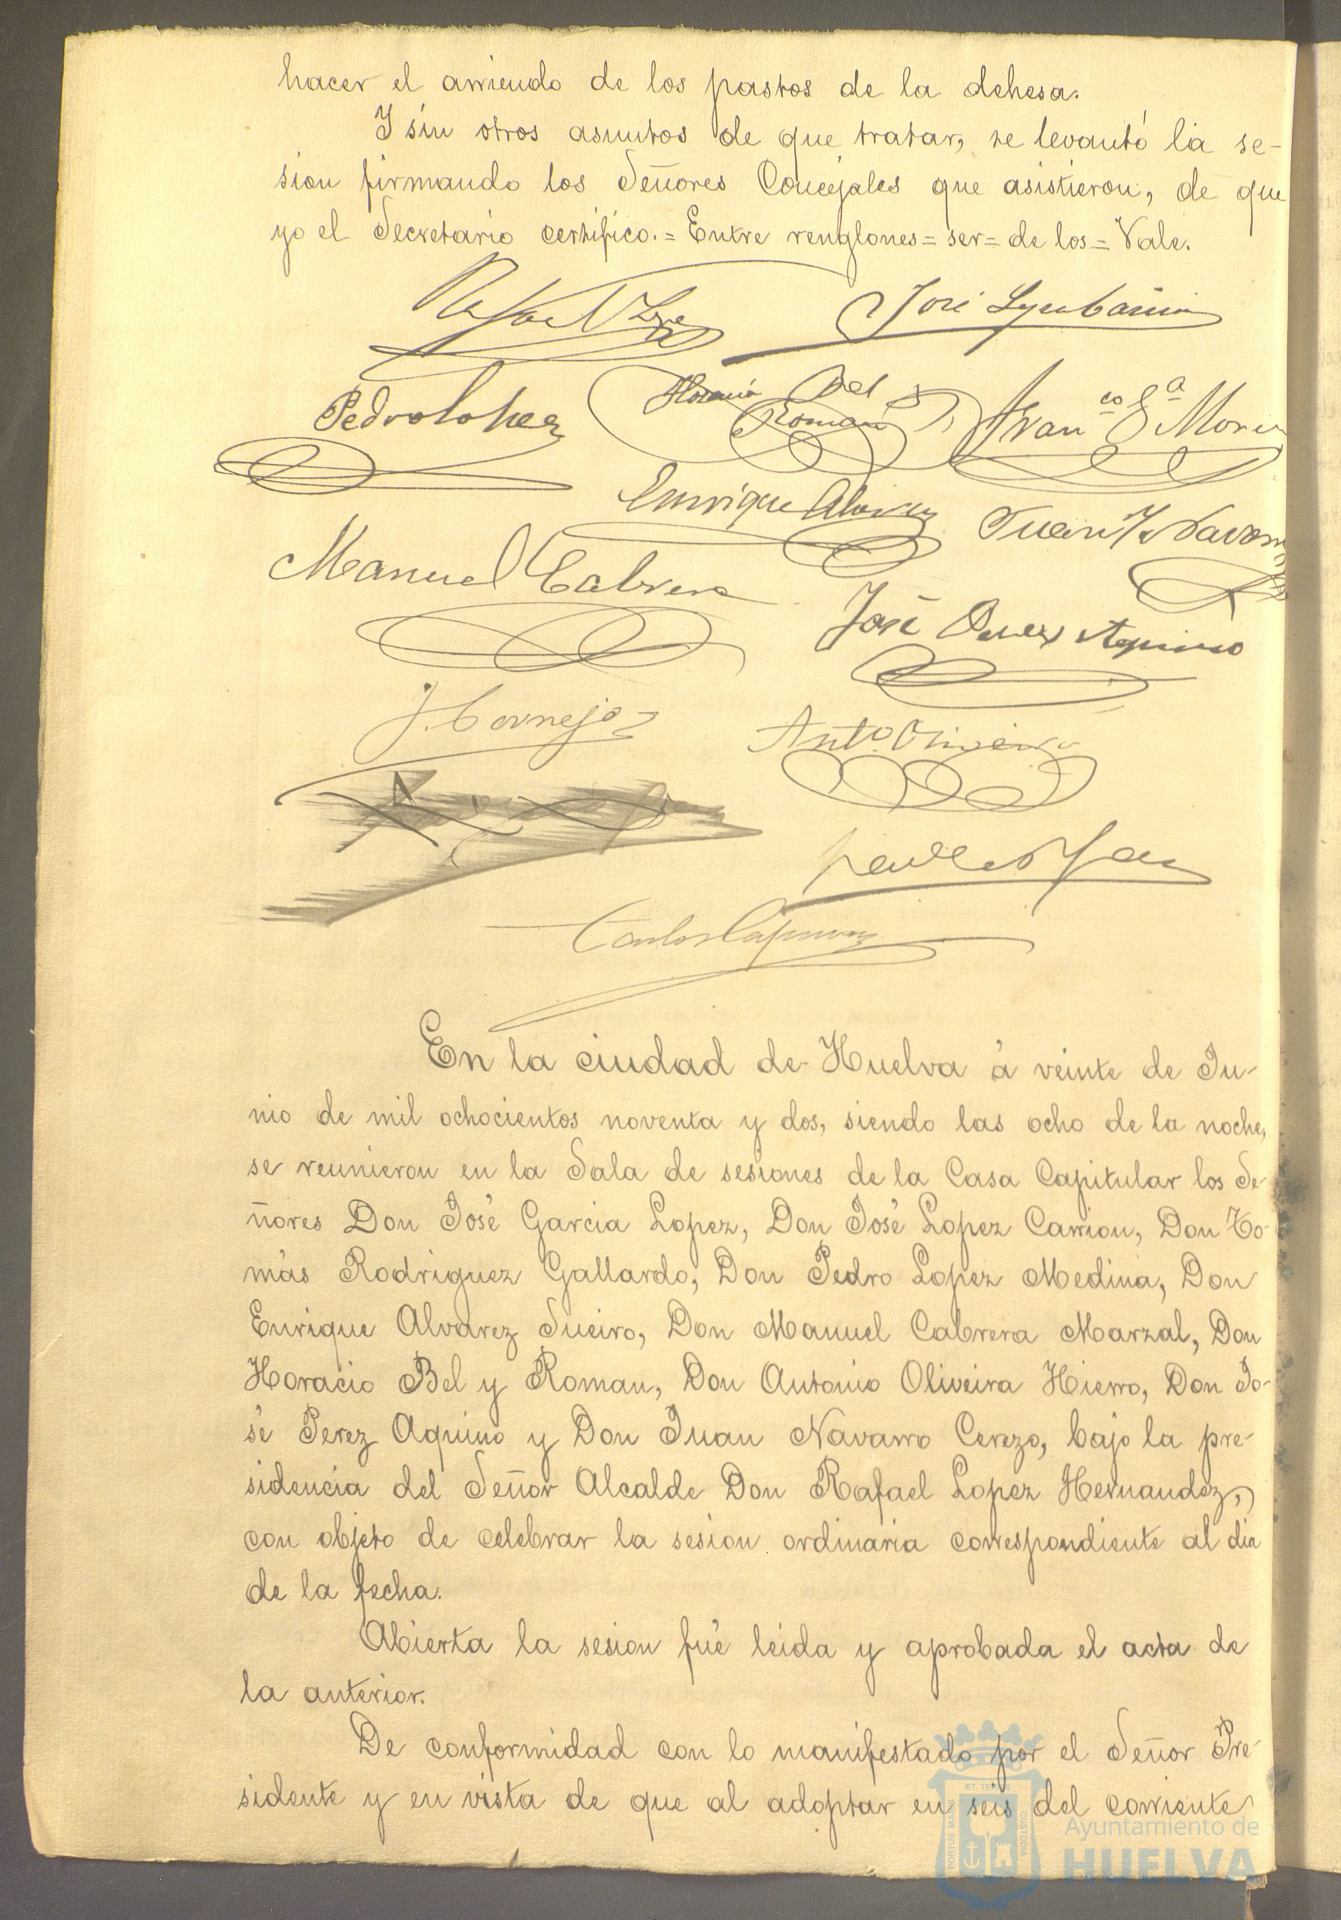 hacer el arriendo de los pastos de la dehesa.
Y sin otros asuntos de que tratar, se levantó la se-
sion firmando los Señores Concejales que asistieron, de que
yo el Secretario certifico.= Entre renglones= ser= de los= Vale.
Rafael José
Pedro Lopez Horacio Bel y Roman Fran.co
Enrique Alvarez Juan Navarro
Manuel Cabrera
José Perez Aquino
J. Cornejo
Anto. Oliveira
Carlos
En la ciudad de Huelva á veinte de Ju-
nio de mil ochocientos noventa y dos, siendo las ocho de la noche,
se reunieron en la Sala de sesiones de la Casa Capitular los Se-
ñores Don José Garcia Lopez, Don José Lopez Carrion, Don To-
más Rodriguez Gallardo, Don Pedro Lopez Medina, Don
Enrique Alvarez Sueiro, Don Manuel Cabrera Marzal, Don
Horacio Bel y Roman, Don Antonio Oliveira Hierro, Don Jo-
sé Perez Aquino y Don Juan Navarro Cerezo, bajo la pre-
sidencia del Señor Alcalde Don Rafael Lopez Hernandez,
con objeto de celebrar la sesion ordinaria correspondiente al dia
de la fecha.
Abierta la sesion fué leida y aprobada el acta de
la anterior.
De conformidad con lo manifestado por el Señor Pre-
sidente y en vista de que al adoptar en seis del corriente
Ayuntamiento de
HUELVA